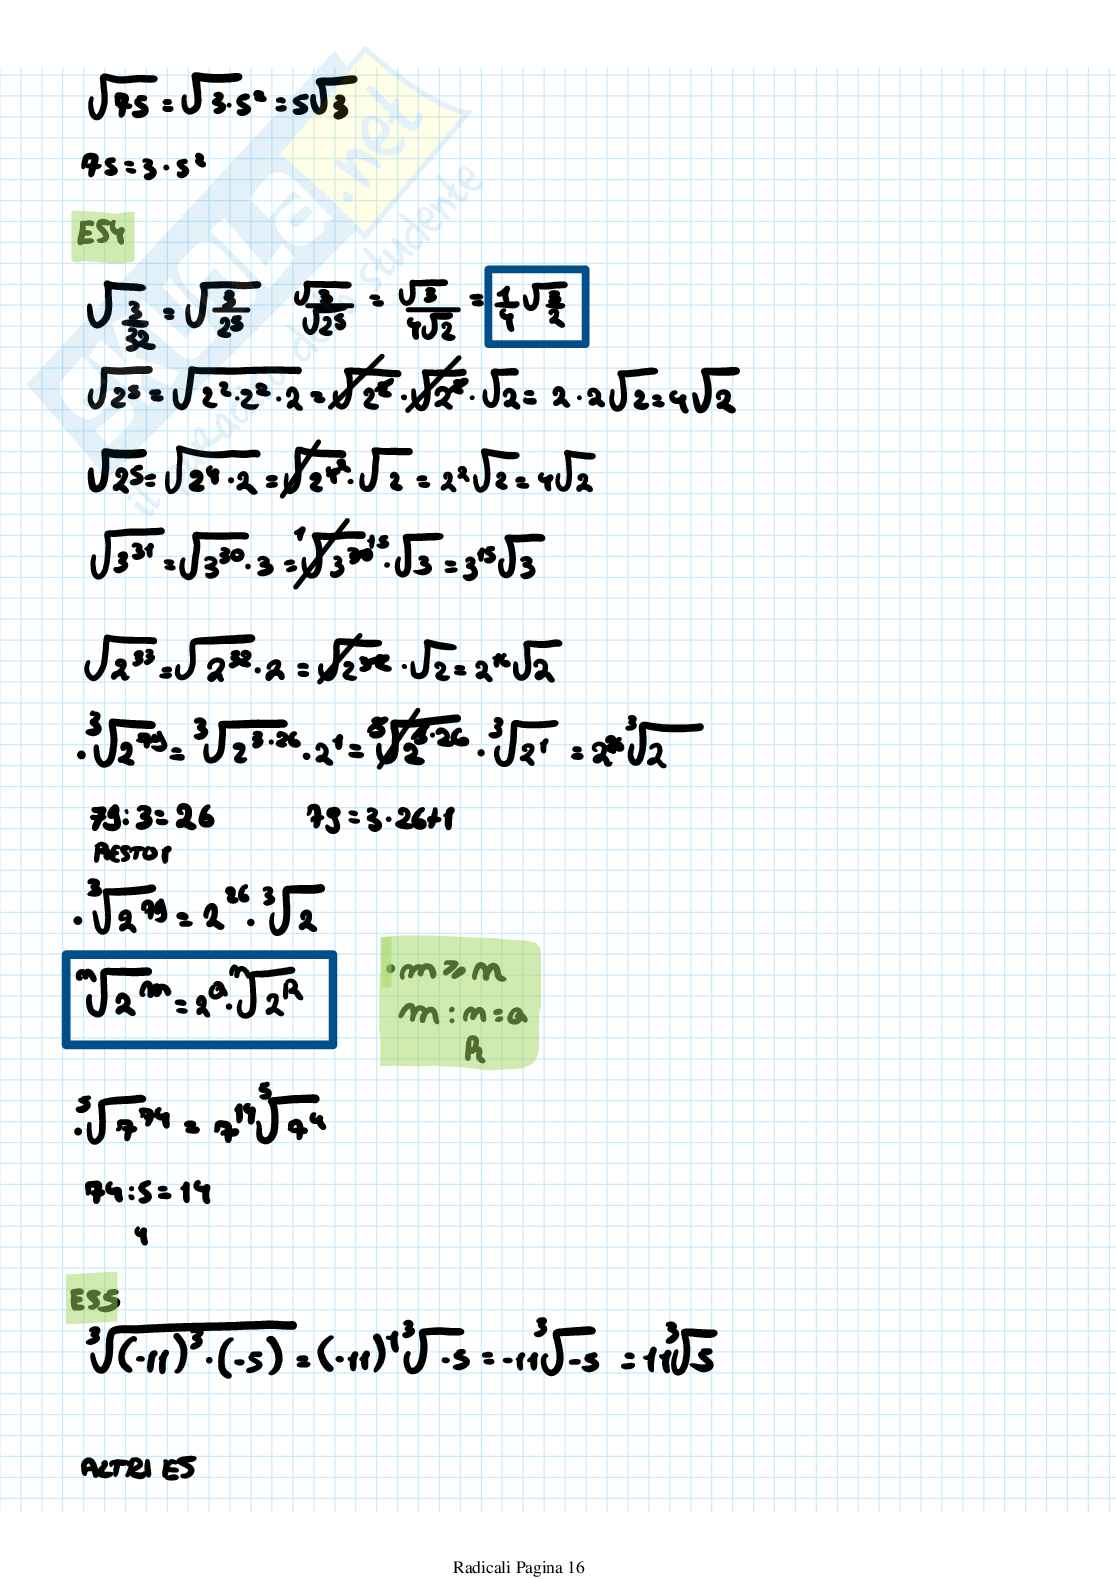 √75 = √3·5² = 5√3
75 = 3·5²
ES4
√3/32 = √3/2⁵ √3/√2⁵ = √3/4√2 = 1/4 √3/2
√2⁵ = √2²·2²·2 = √2²·√2²·√2 = 2·2√2 = 4√2
√2⁵ = √2⁴·2 = √2⁴²·√2 = 2²√2 = 4√2
√3³¹ = √3³⁰·3 = ¹√3³⁰¹⁵·√3 = 3¹⁵√3
√2³³ = √2³²·2 = √2³²·√2 = 2¹⁶√2
·³√2⁷⁹ = ³√2³·²⁶·2¹ = ³√2³·²⁶·³√2¹ = 2²⁶ ³√2
79:3=26 79=3·26+1
RESTO 1
·³√2⁷⁹ = 2²⁶·³√2
ⁿ√2ᵐ = 2ᵃ·ⁿ√2ᴿ
·m ⩾ n
m : n = a
R
·⁵√7⁷⁴ = 7¹⁴ ⁵√7⁴
74:5=14
4
ES5
³√(-11)³·(-5) = (-11)¹ ³√-5 = -11 ³√-5 = 11 ³√5
ALTRI ES
SKUOLA.net
il paradiso dello studente
Radicali Pagina 16